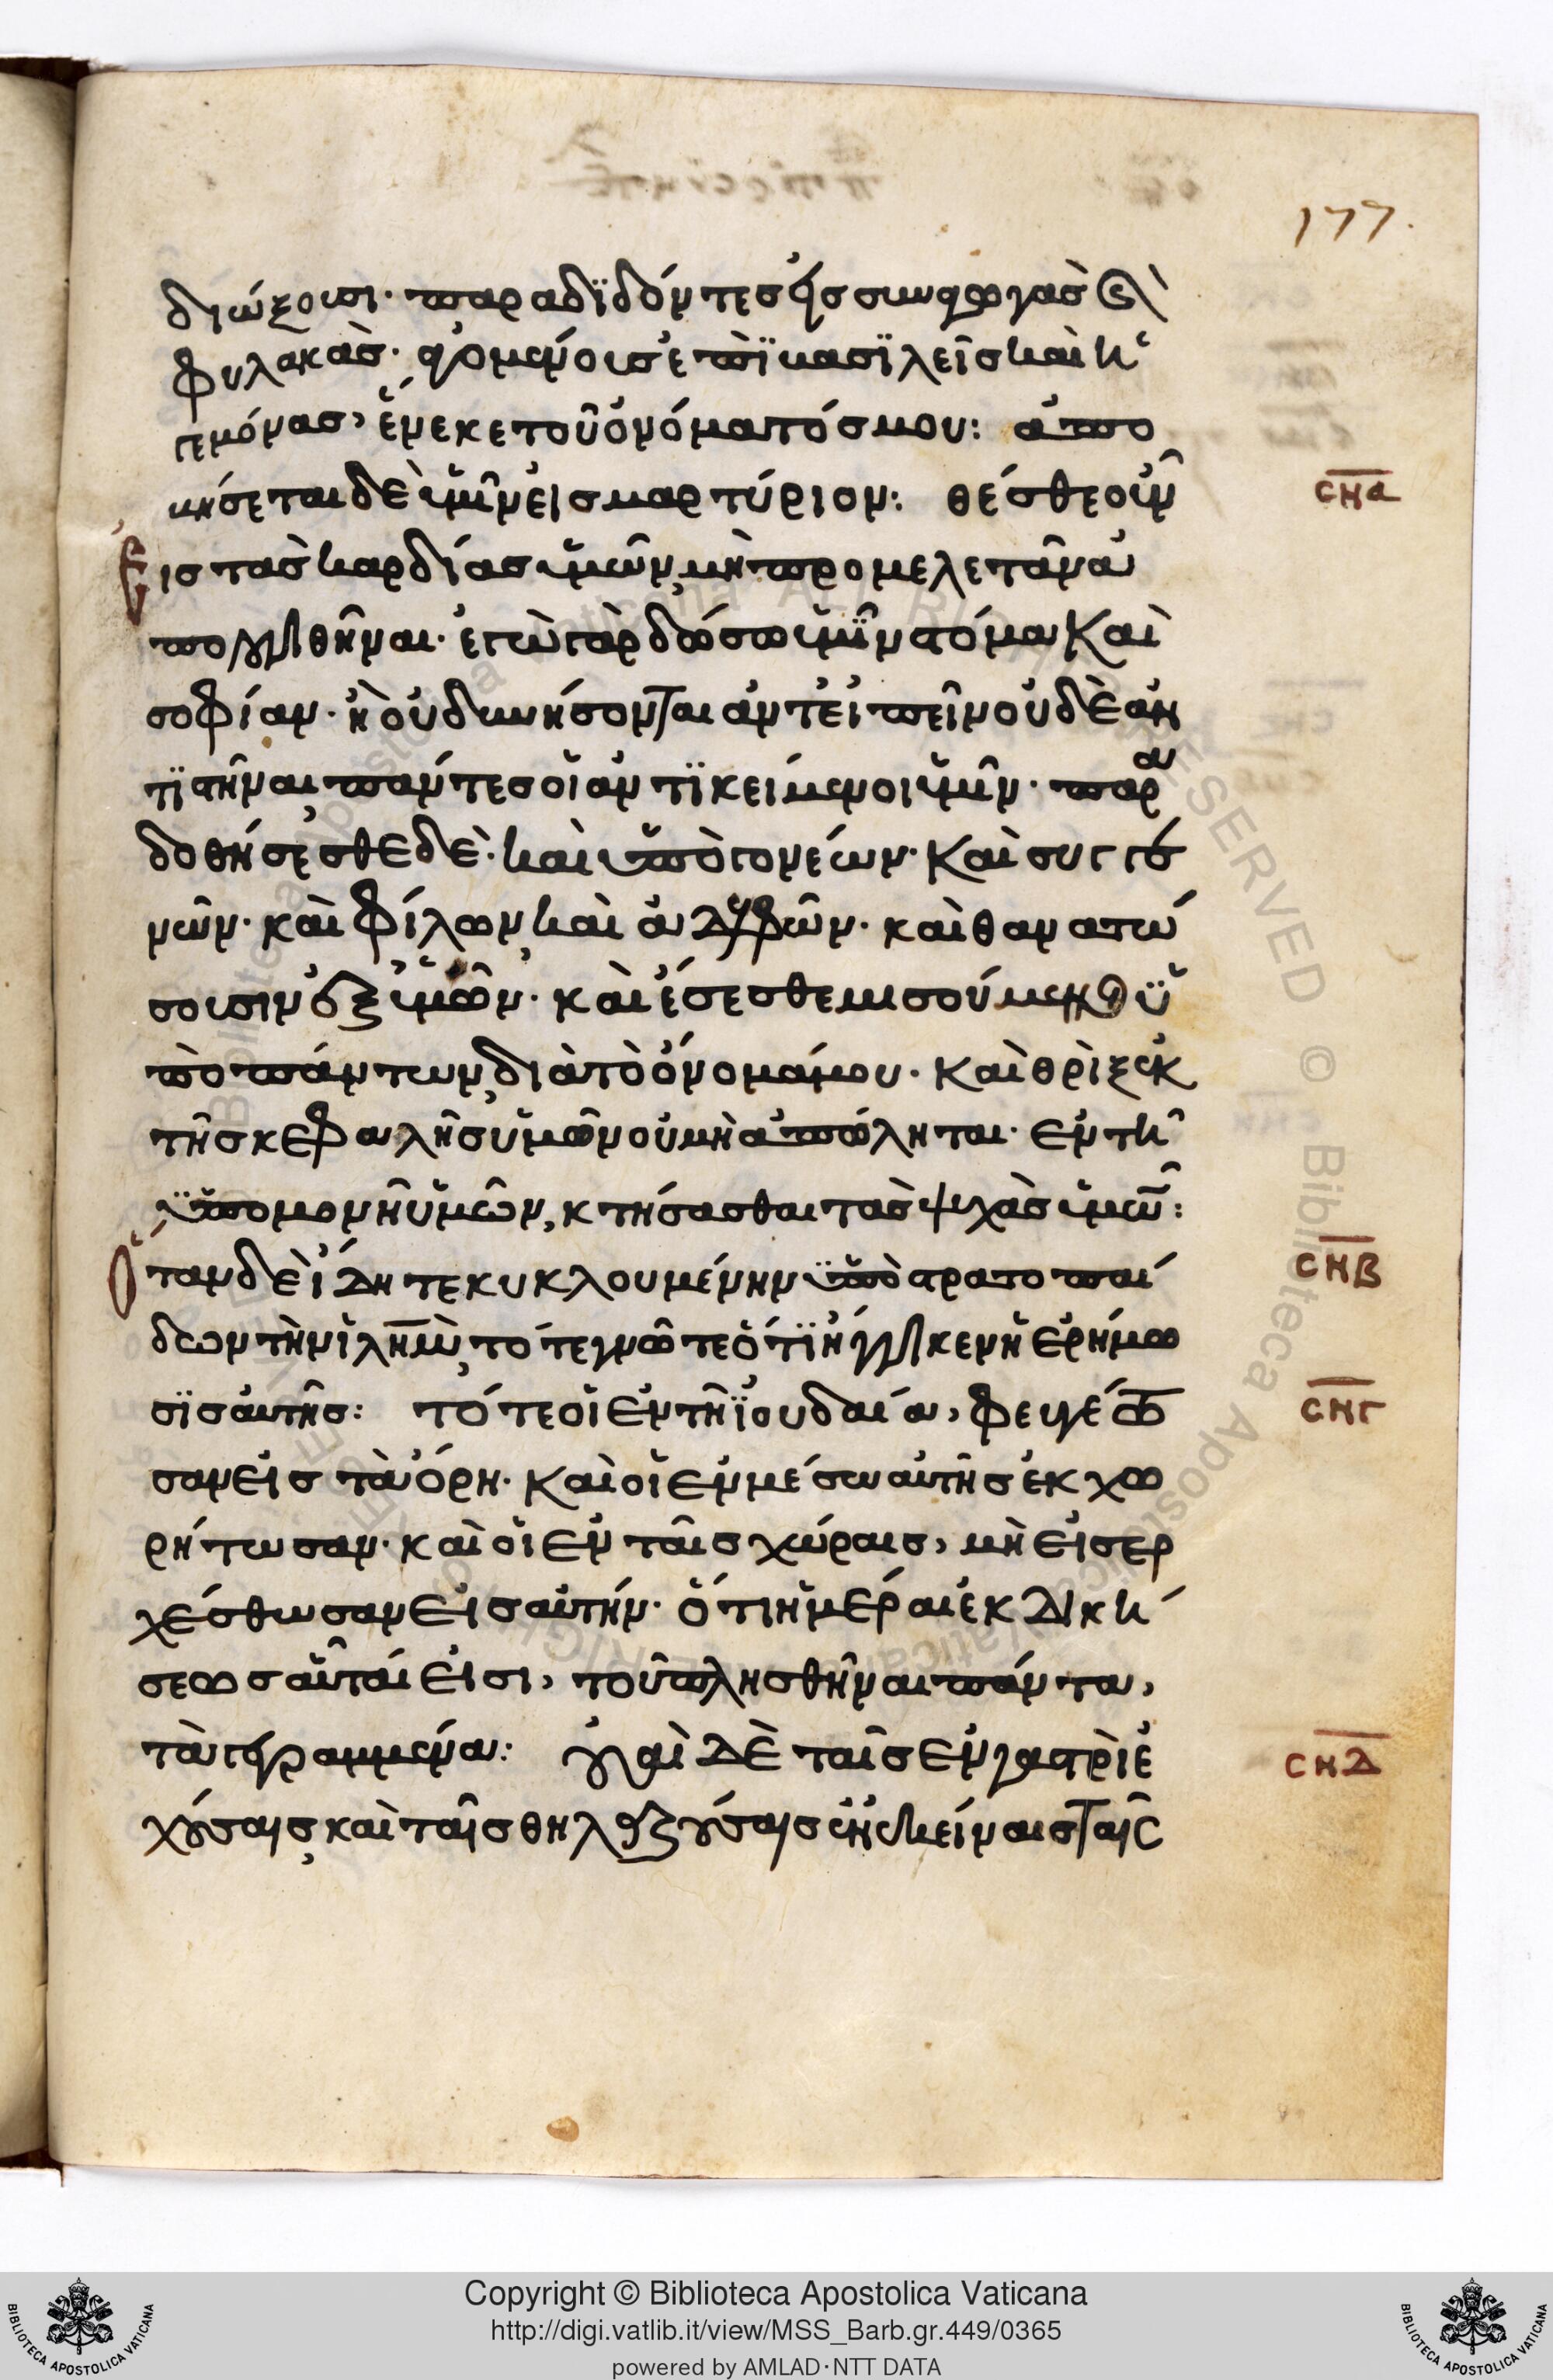 177.
διώξουσι· παραδϊδόντες εἰς συναγωγὰς καὶ
φυλακὰς· ἀγομένους ἐπὶ βασϊλεῖς καὶ ἡ
γεμόνας, ἕνεκε τοῦ ὀνόματός μου: ἀπο
βήσεται δὲ ὑμῖν εἰς μαρτύριον: θέσθε οὖν
ϹΗΑ
εἰς τὰς καρδίας ὑμῶν, μὴ προμελετᾶν ἀ
πολογηθῆναι· ἐγὼ γὰρ δώσω ὑμῖν στόμα καὶ
σοφίαν· ἧ οὐ δυνήσονται ἀντειπεῖν οὐδὲ ἀν
τϊστῆναι, πάντες οἱ ἀντϊκείμενοι ὑμῖν· παρα
δοθήσεσθε δὲ· καὶ ὑπὸ γονέων· καὶ συγγε
νῶν· καὶ φίλων, καὶ ἀδελφῶν· καὶ θανατώ
σουσιν ἐξ ὑμῶν· καὶ ἔσεσθε μισούμενοι ὑ
πὸ πάντων, διὰ τὸ ὄνομά μου· καὶ θρὶξ ἐκ
τῆς κεφαλῆς ὑμῶν οὐ μὴ ἀπόληται· ἐν τῆ
ὑπομονῆ ὑμῶν, κτήσασθαι τὰς ψυχὰς ὑμῶν:
Ὅταν δὲ ἴδητε κυκλουμένην ὑπὸ στρατοπαί
ϹΗΒ
δων τὴν ἱλημ̅, τότε γνῶτε ὅτϊ ἤγγικεν ἡ ἐρήμω
σϊς αὐτῆς: τότε οἱ ἐν τῆ ϊουδαία, φευγέτω
ϹΗΓ
σαν εἰς τὰ ὄρη· καὶ οἱ ἐν μέσω αὐτῆς ἐκχω
ρήτωσαν· καὶ οἱ ἐν ταῖς χώραις, μὴ εἰσερ
χέσθωσαν εἰς αὐτήν· ὅτι ἡμέραι ἐκδική
σεως αὗταί εἰσι, τοῦ πλησθῆναι πάντα,
τὰ γεγραμμένα: οὐαὶ δὲ ταῖς ἐν γαστρὶ ἐ
ϹΗΔ
χούσαις, καὶ ταῖς θηλαζούσαις ἐν ἐκείναις ταῖς
Copyright © Biblioteca Apostolica Vaticana
http://digi.vatlib.it/view/MSS_Barb.gr.449/0365
powered by AMLAD·NTT DATA
BIBLIOTECA APOSTOLICA VATICANA
BIBLIOTECA APOSTOLICA VATICANA